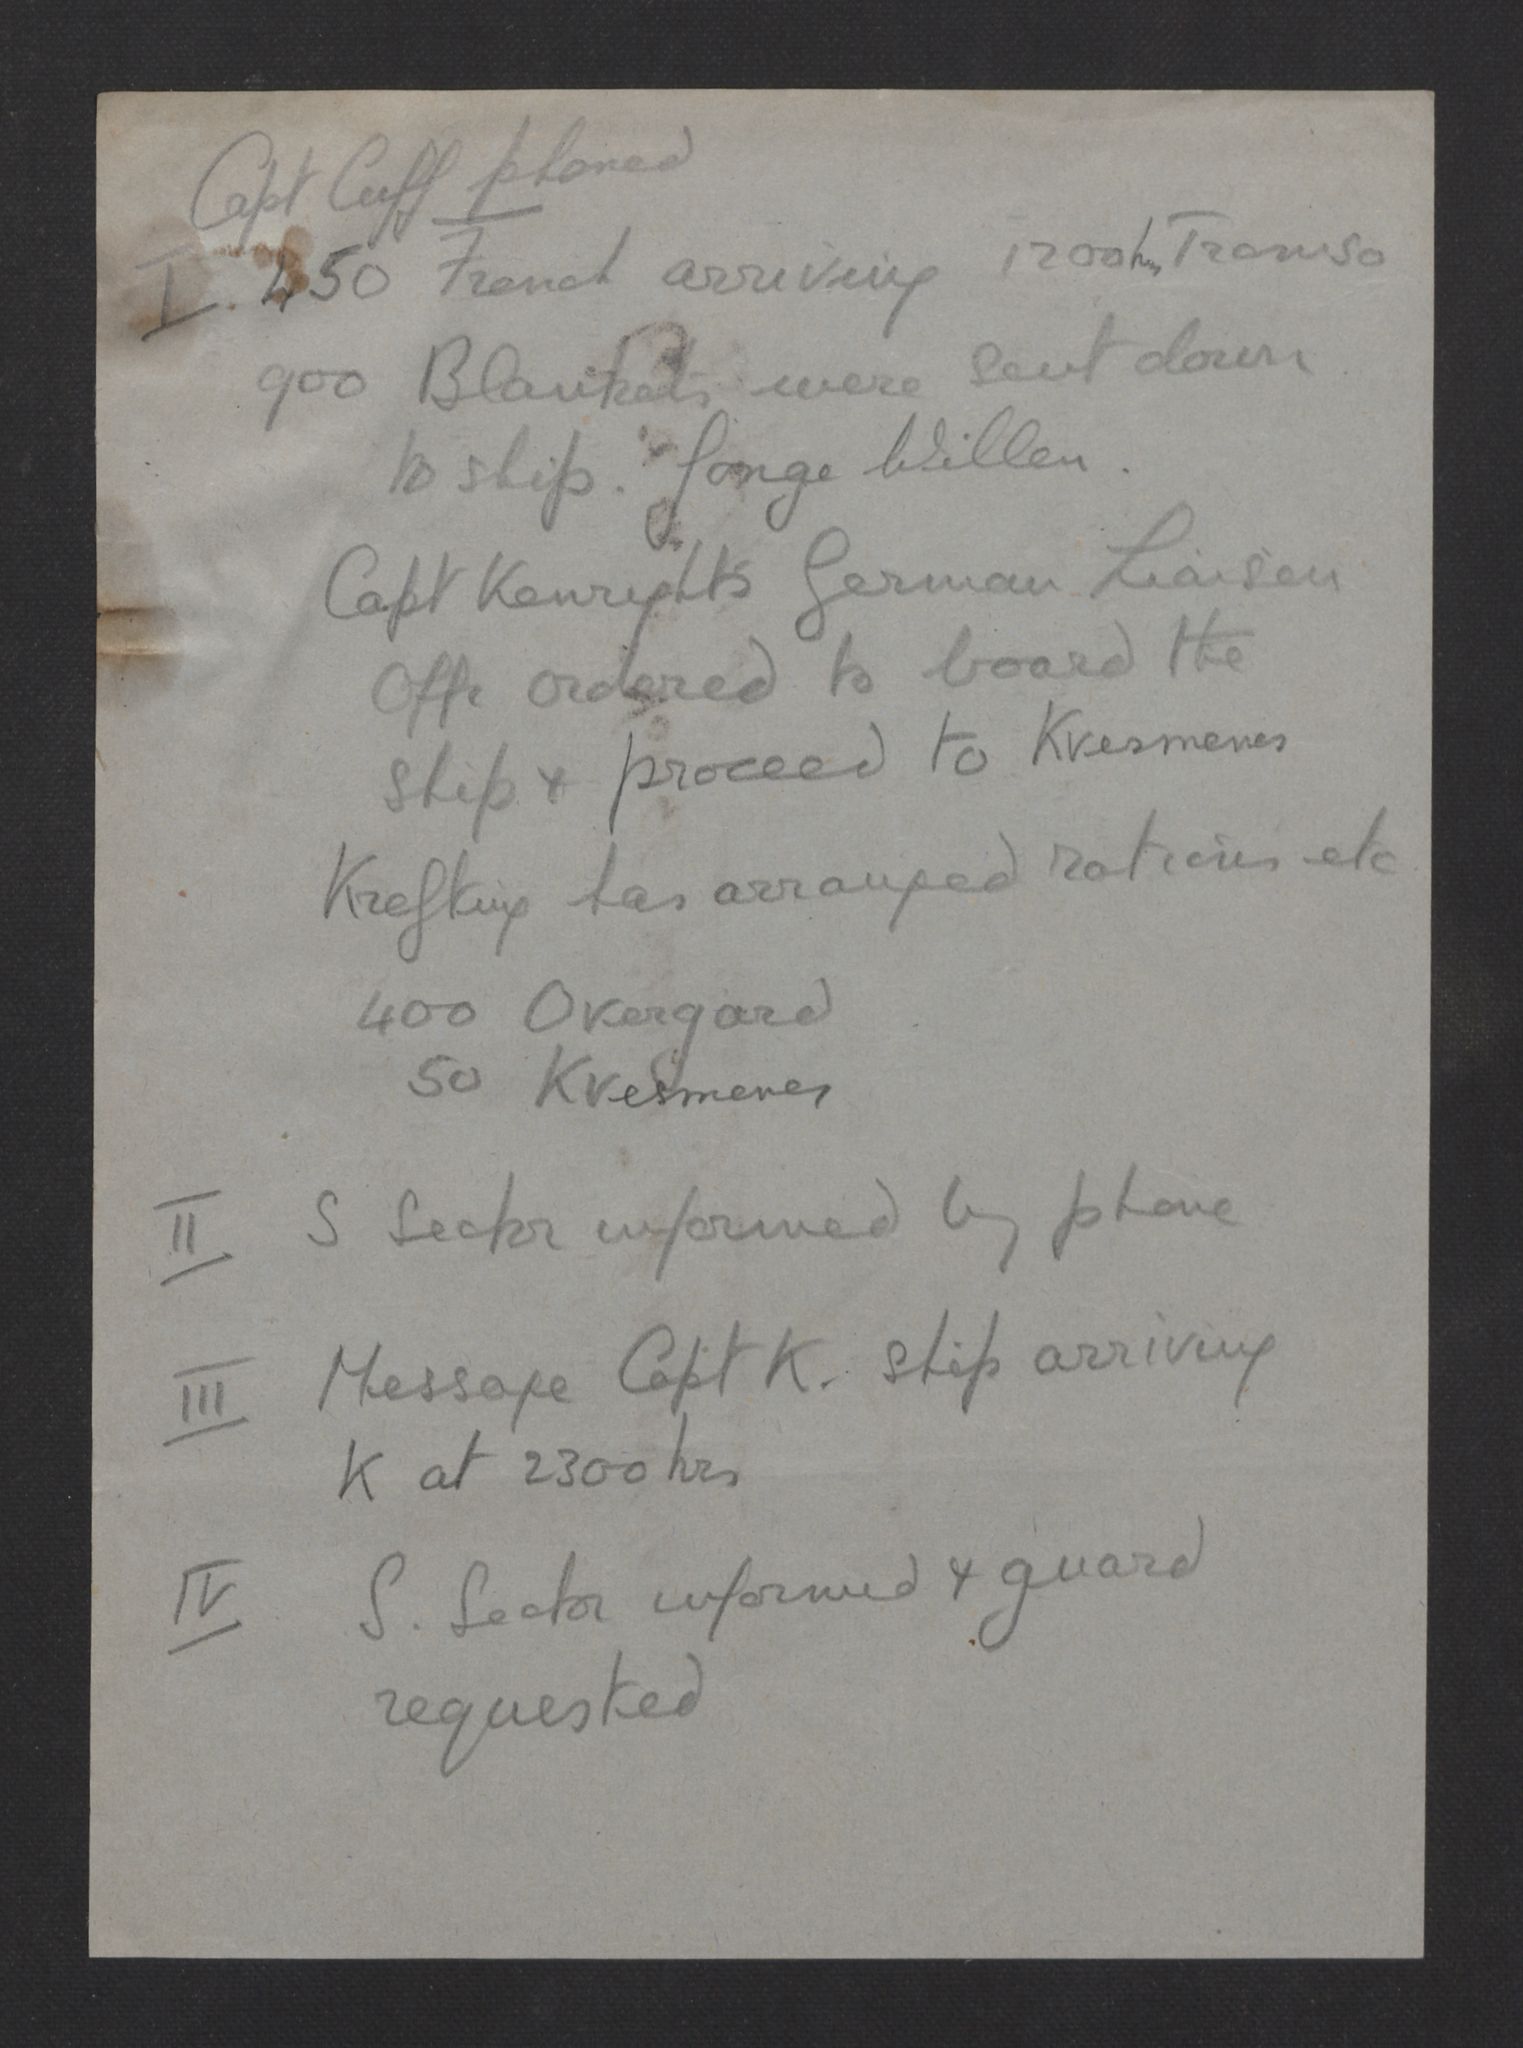 Capt Cuff phoned
I. 450 French arriving 1200hrs Tromso
900 Blankets were sent down
to ship. Jonge Willen.
Capt Kenrights German Liaison
Offr ordered to board the
ship & proceed to Kvesmenes
Krefting has arranged rations etc
400 Overgard
50 Kvesmenes
II S Sector informed by phone
III Message Capt K. ship arriving
K at 2300 hrs
IV S. Sector informed & guard
requested